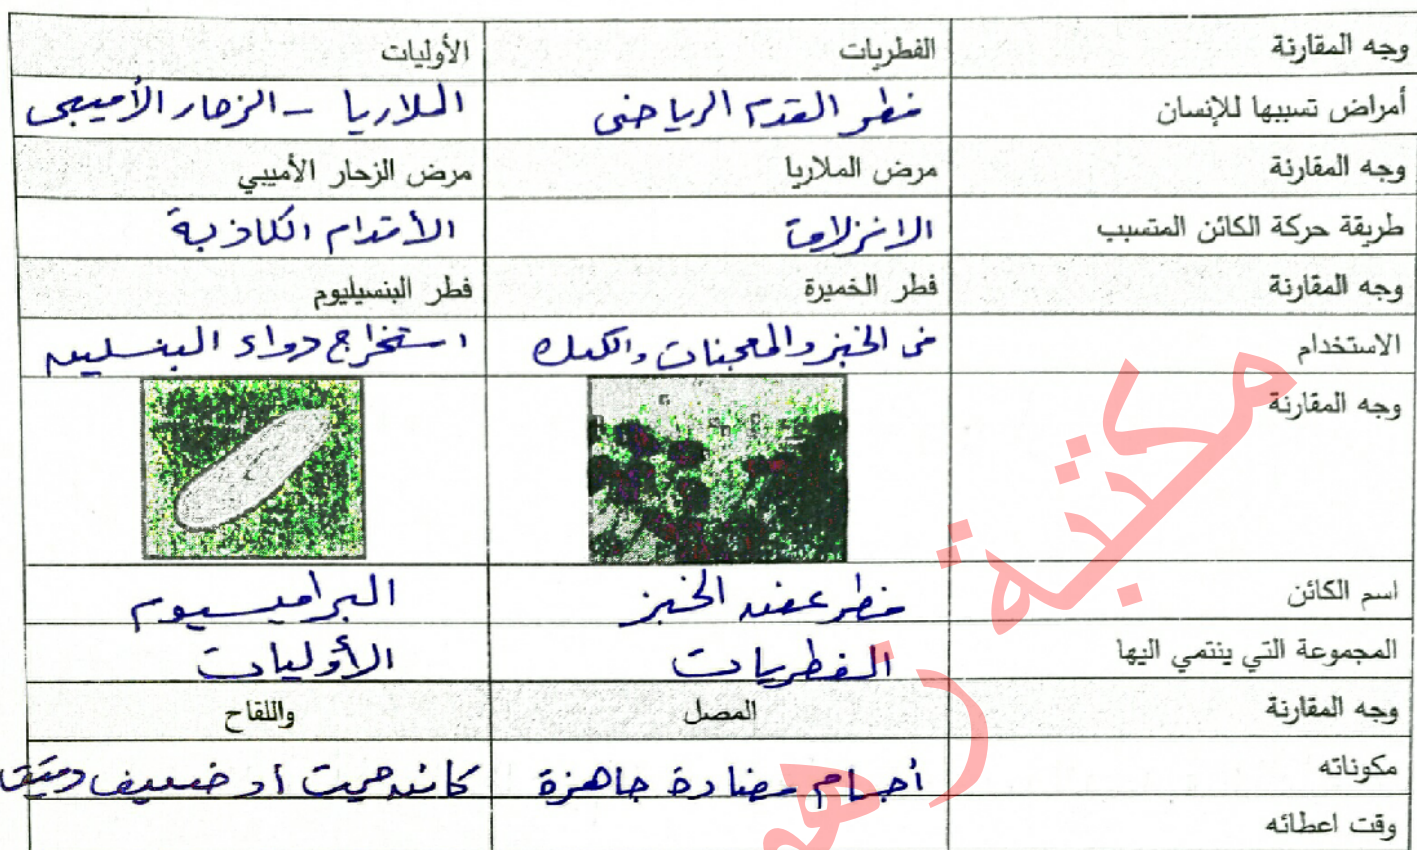 وجه المقارنة الفطريات الأوليات
أمراض تسببها للإنسان فطر القدم الرياضي الملاريا - الزحار الأميبي
وجه المقارنة مرض الملاريا مرض الزحار الأميبي
طريقة حركة الكائن المتسبب الانزلاق الأقدام الكاذبة
وجه المقارنة فطر الخميرة فطر البنسيليوم
الاستخدام في الخبز والمعجنات والكعك استخراج دواء البنسلين
وجه المقارنة
اسم الكائن فطر عفن الخبز البراميسيوم
المجموعة التي ينتمي اليها الفطريات الأوليات
وجه المقارنة المصل واللقاح
مكوناته أجسام مضادة جاهزة كائن ميت أو ضعيف دقيق
وقت اعطائه
مكتبة